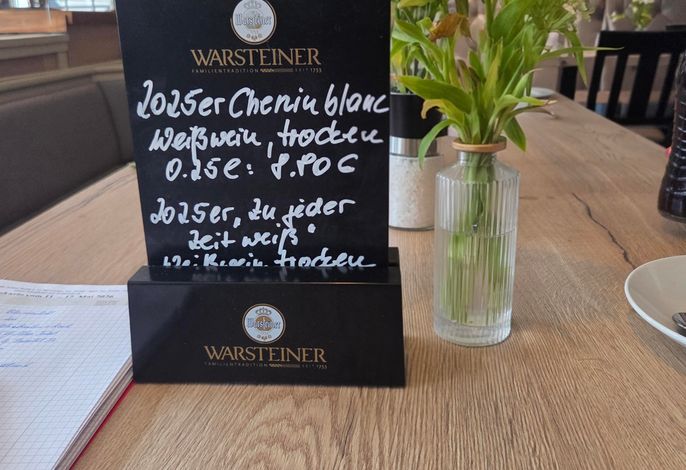 Warsteiner
WARSTEINER
FAMILIENTRADITION SEIT 1753
2025er Chenin blanc
Weißwein, trocken
0.25l: 8.80€
2025er, zu jeder
Zeit weiß"
Weißwein trocken
Warsteiner
WARSTEINER
FAMILIENTRADITION SEIT 1753